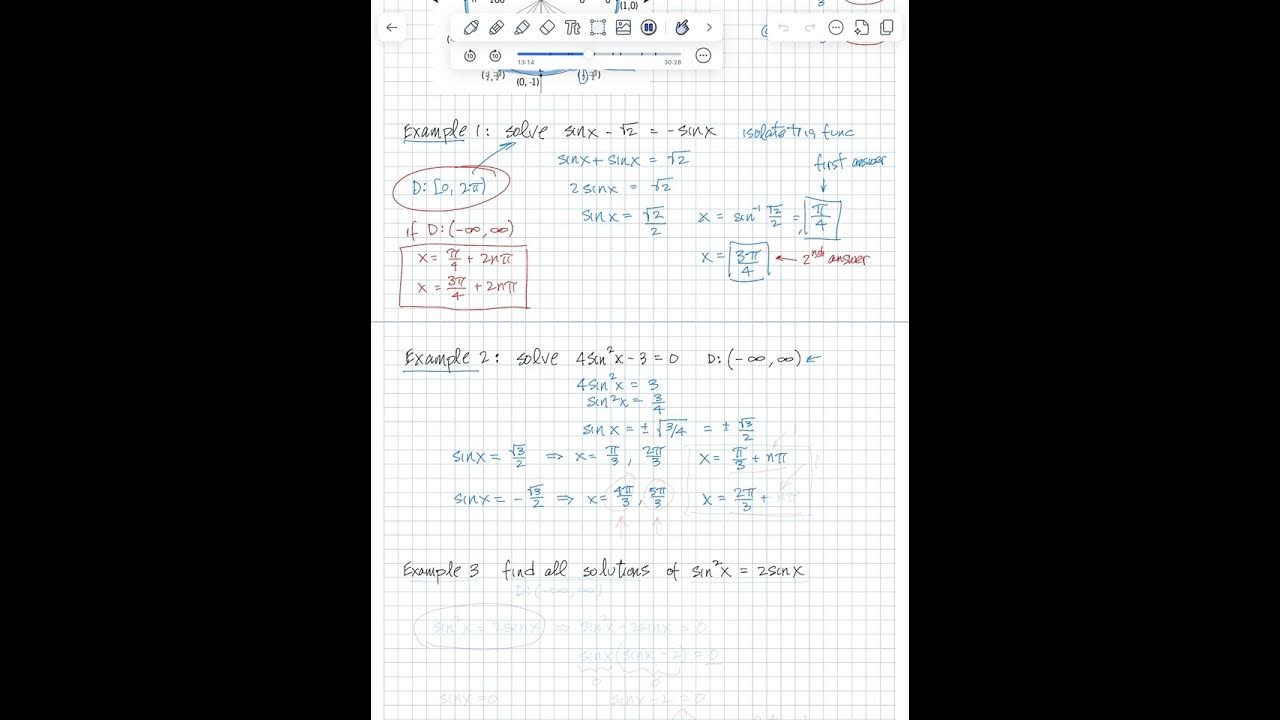 (1,0)
13:14 30:28
(0, -1)
Example 1: solve sinx - √2 = -sinx isolate trig func
sinx + sinx = √2 first answer
D: [0, 2π) 2 sinx = √2
sinx = √2/2 x = sin⁻¹ √2/2 = π/4
if D: (-∞, ∞)
x = π/4 + 2nπ x = 3π/4 ← 2nd answer
x = 3π/4 + 2nπ
Example 2: solve 4sin²x - 3 = 0 D: (-∞, ∞) ←
4sin²x = 3
sin²x = 3/4
sinx = ± √3/4 = ± √3/2
sinx = √3/2 ⇒ x = π/3, 2π/3 x = π/3 + nπ
sinx = - √3/2 ⇒ x = 4π/3, 5π/3 x = 2π/3 + nπ
Example 3 find all solutions of sin²x = 2sinx
D: (-∞, ∞)
sin²x = 2sinx ⇒ sin²x - 2sinx = 0
sinx(sinx - 2) = 0
0 0
sinx = 0 sinx - 2 = 0